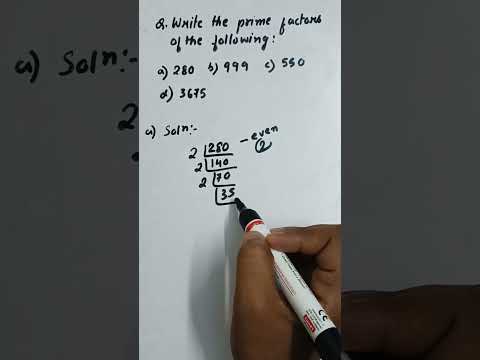 Q. Write the prime factors
of the following:
a) 280 b) 999 c) 550
d) 3675
a) Soln:-
2 280 - even
2 140 2
2 70
35
a) Soln:-
2